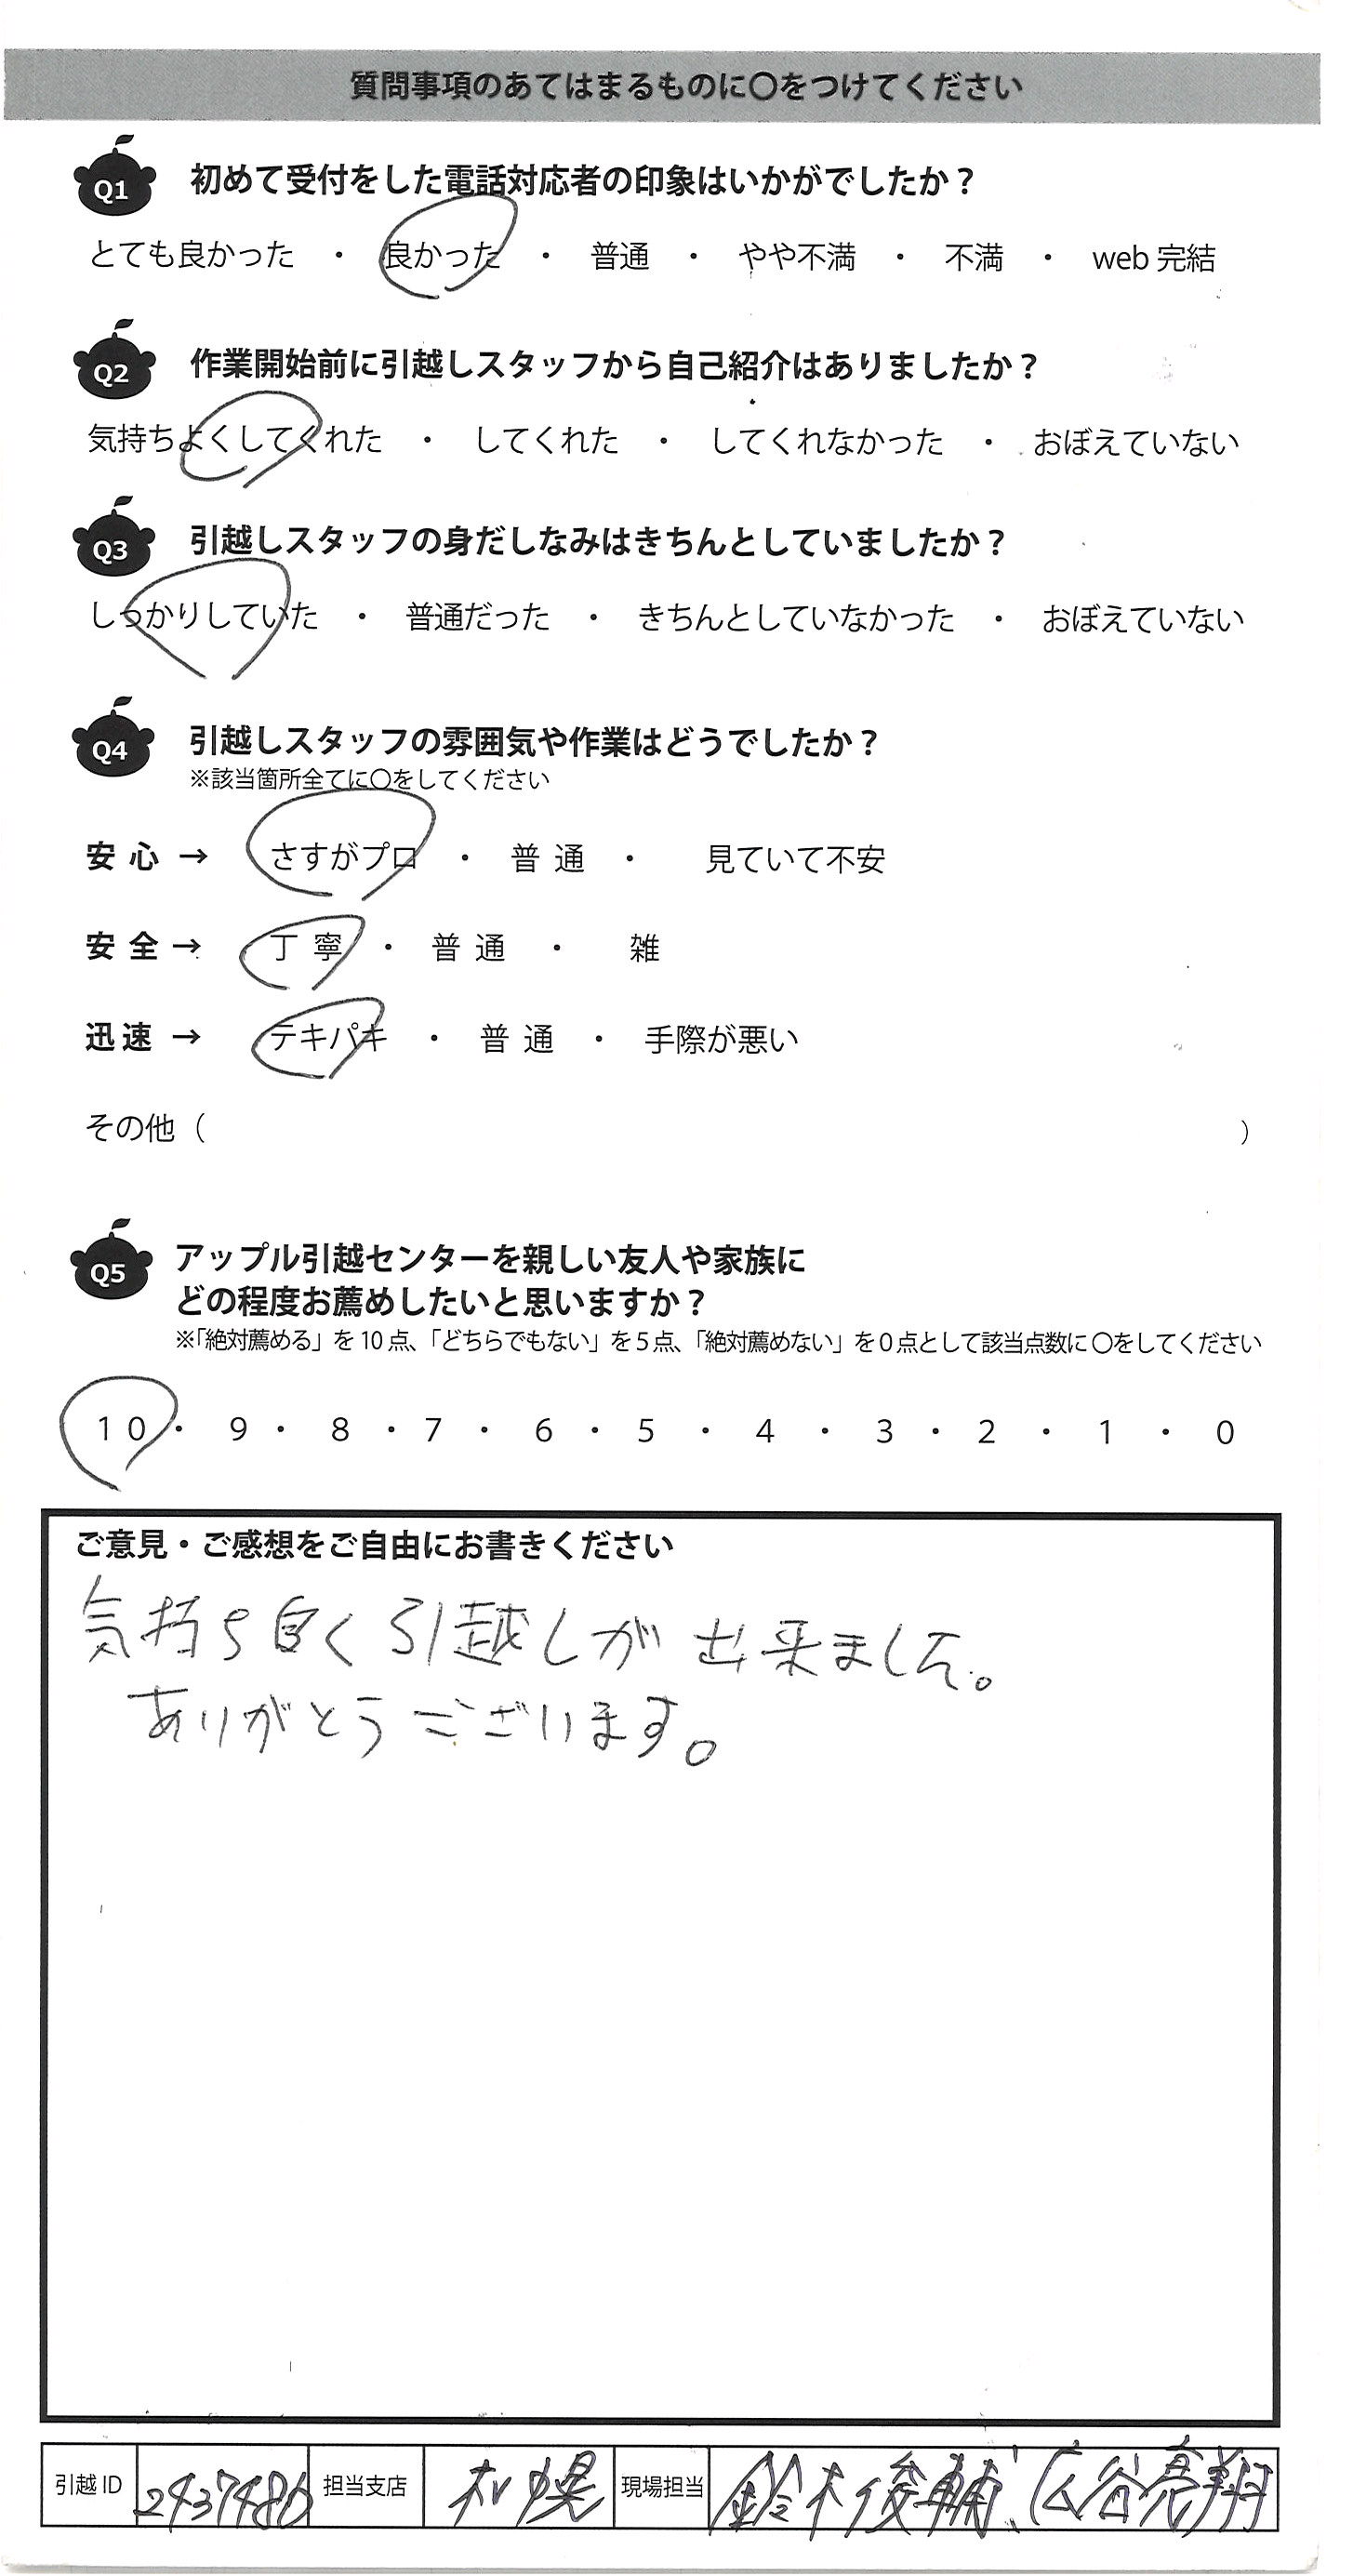 質問事項のあてはまるものに〇をつけてください
Q1 初めて受付をした電話対応者の印象はいかがでしたか？
とても良かった ・ 良かった ・ 普通 ・ やや不満 ・ 不満 ・ web 完結
Q2 作業開始前に引越しスタッフから自己紹介はありましたか？
気持ちよくしてくれた ・ してくれた ・ してくれなかった ・ おぼえていない
Q3 引越しスタッフの身だしなみはきちんとしていましたか？
しっかりしていた ・ 普通だった ・ きちんとしていなかった ・ おぼえていない
Q4 引越しスタッフの雰囲気や作業はどうでしたか？
※該当箇所全てに〇をしてください
安心 → さすがプロ ・ 普通 ・ 見ていて不安
安全 → 丁寧 ・ 普通 ・ 雑
迅速 → テキパキ ・ 普通 ・ 手際が悪い
その他（ ）
Q5 アップル引越センターを親しい友人や家族に
どの程度お薦めしたいと思いますか？
※「絶対薦める」を10点、「どちらでもない」を5点、「絶対薦めない」を0点として該当点数に〇をしてください
10 ・ 9 ・ 8 ・ 7 ・ 6 ・ 5 ・ 4 ・ 3 ・ 2 ・ 1 ・ 0
ご意見・ご感想をご自由にお書きください
気持ち良く引越しが出来ました。
ありがとうございます。
引越ID 2437486 担当支店 札幌 現場担当 鈴木俊輔、広谷亮翔